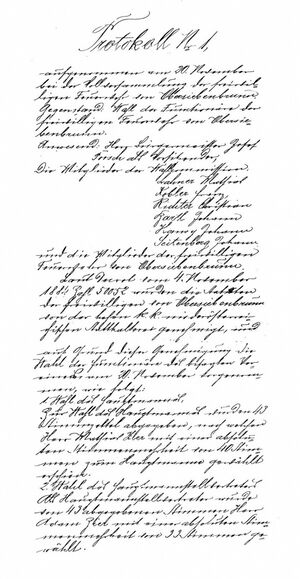 Protokoll Nr 1,
aufgenommen am 30. November
bei der Vollversammlung der freiwil-
ligen Feuerwehr von Obersiebenbrunn.
Gegenstand: Wahl der Funktionäre der
freiwilligen Feuerwehr von Obersie-
benbrunn.
Anwesend: Herr Bürgermeister Josef
als Vorsitzender,
Die Mitglieder der Wahlkommission
Mathias
Kobler Franz
Richter Christian
Johann
Johann
Johann
und die Mitglieder der freiwilligen
Feuerwehr von Obersiebenbrunn.
Laut Decret vom 4. November
Zahl wurden die Statuten
der freiwilligen von Obersiebenbrunn
von der hohen k.k. niederösterrei-
chischen Statthalterei genehmigt, und
auf Grund dieser Genehmigung die
Wahl der Funktionäre des besagten Ver-
eines am 30 November vorgenom-
men, wie folgt:
1. Wahl des Hauptmannes.
Zur Wahl des Hauptmannes wurden 43
Stimmzettel abgegeben, nach welchen
Herr Mathias mit einer absolu-
ten Stimmenmehrheit von 40 Stim-
men zum Hauptmanne gewählt
erscheint.
2. Wahl des Hauptmannstellvertreters
Als Hauptmannstellvertreter wurde
von 43 abgegebenen Stimmen Herr
Adam mit einer absoluten Stim-
menmehrheit von 33 Stimmen ge-
wählt.